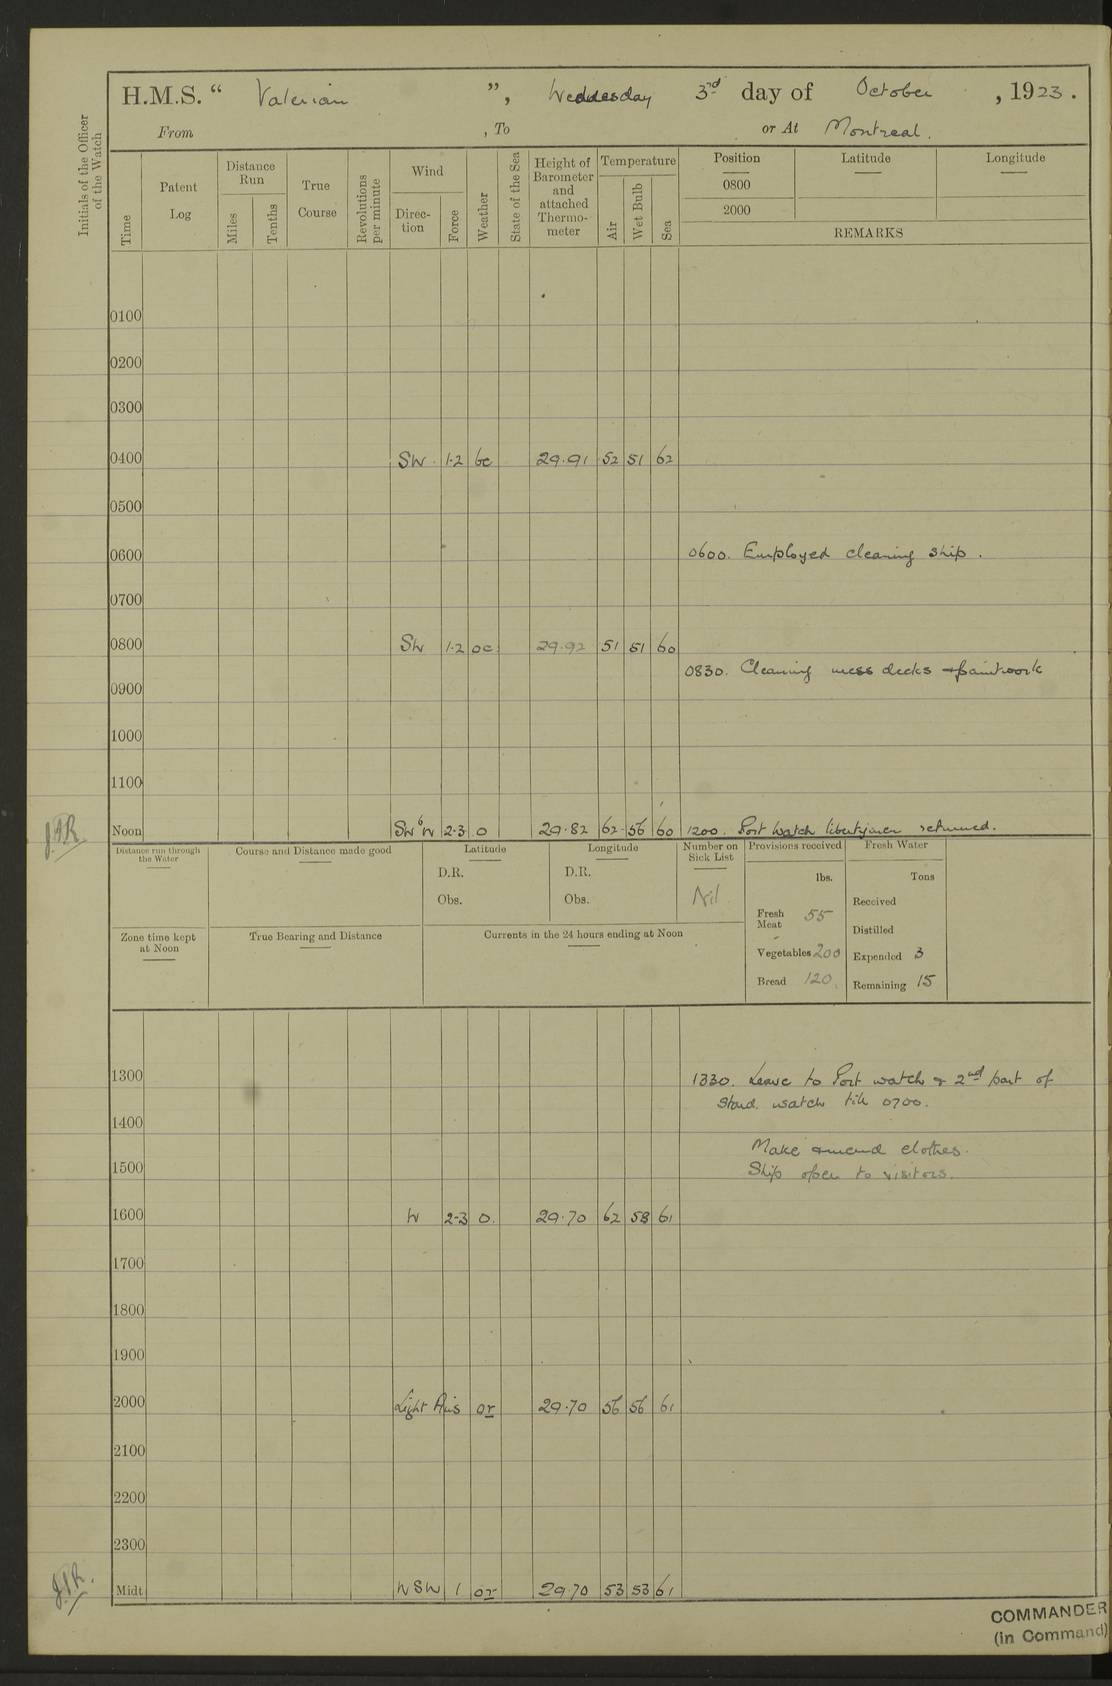 H.M.S. “ Valerian ”, Wednesday 3rd day of October , 1923.
From , To or At Montreal.
Initials of the Officer of the Watch
Time
Patent Log
Distance Run
Miles
Tenths
True Course
Revolutions per minute
Wind
Direction
Force
Weather
State of the Sea
Height of Barometer and attached Thermometer
Temperature
Air
Wet Bulb
Sea
Position Latitude Longitude
0800
2000
REMARKS
0100
0200
0300
0400 SW 1·2 bc 29·91 52 51 62
0500
0600 0600. Employed cleaning ship.
0700
0800 SW 1·2 oc 29·92 51 51 60
0830. Cleaning mess decks & paintwork
0900
1000
1100
Noon SW b W 2·3 o 29·82 62 56 60 1200. Port Watch libertymen returned.
Distance run through the Water
Course and Distance made good
Latitude
D.R.
Obs.
Longitude
D.R.
Obs.
Number on Sick List
Nil
Provisions received
lbs.
Fresh Meat 55
Vegetables 200
Bread 120.
Fresh Water
Tons
Received
Distilled
Expended 3
Remaining 15
Zone time kept at Noon
True Bearing and Distance
Currents in the 24 hours ending at Noon
1300 1330. Leave to Port watch & 2nd part of
Stard. watch till 0700.
1400
Make & mend clothes.
1500 Ship open to visitors.
1600 W 2-3 o. 29·70 62 58 61
1700
1800
1900
2000 Light Airs or 29·70 56 56 61
2100
2200
2300
Midt WSW 1 or 29·70 53 53 61
COMMANDER
(in Command)